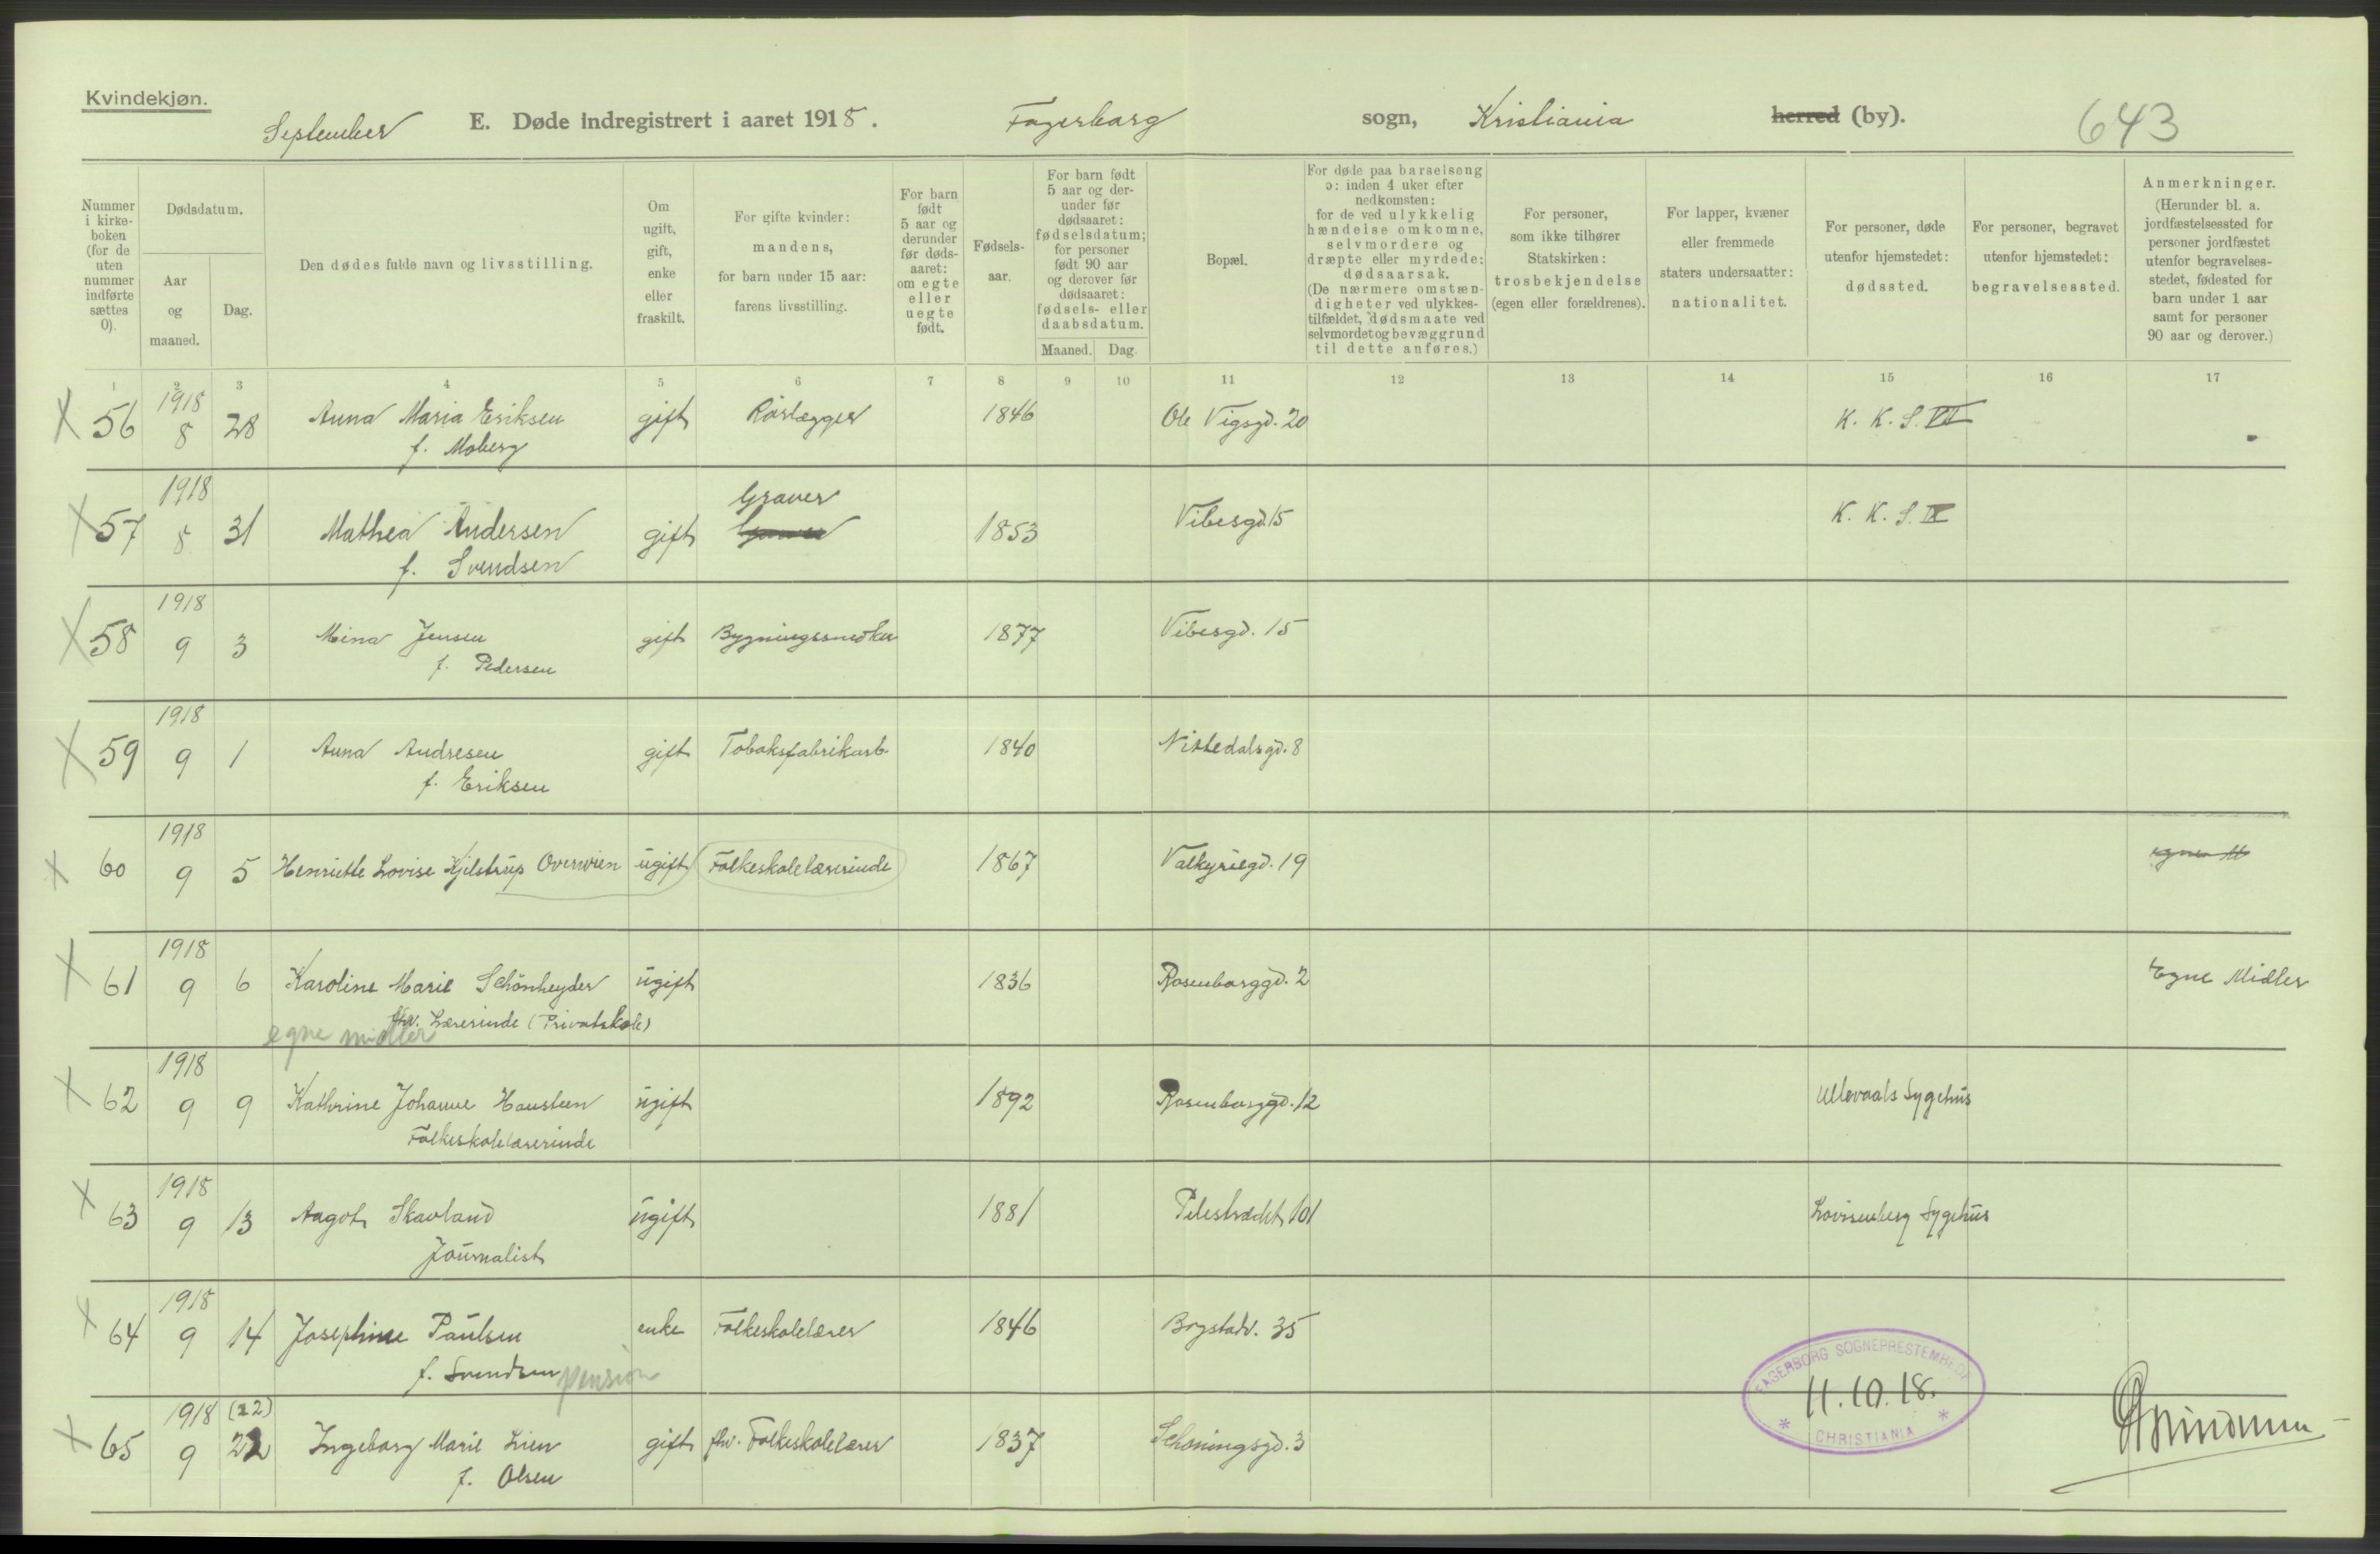 Kvindekjøn.
September E. Døde indregistrert i aaret 1918. Fagerborg sogn, Kristiania herred (by). 643
Nummer i kirke-boken (for de uten nummer indførte sættes 0).
Dødsdatum.
Aar og maaned.
Dag.
Den dødes fulde navn og livsstilling.
Om ugift, gift, enke eller fraskilt.
For gifte kvinder: mandens, for barn under 15 aar: farens livsstilling.
For barn født 5 aar og derunder før døds-aaret: om egte eller uegte født.
Fødsels-aar.
For barn født 5 aar og der-under før dødsaaret: fødselsdatum; for personer født 90 aar og derover før dødsaaret: fødsels- eller daabsdatum.
Maaned. Dag.
Bopæl.
For døde paa barselseng ɔ: inden 4 uker efter nedkomsten: for de ved ulykkelig hændelse omkomne, selvmordere og dræpte eller myrdede: dødsaarsak. (De nærmere omstæn-digheter ved ulykkes-tilfældet, dødsmaate ved selvmordet og bevæggrund til dette anføres.)
For personer, som ikke tilhører Statskirken: trosbekjendelse (egen eller forældrenes).
For lapper, kvæner eller fremmede staters undersaatter: nationalitet.
For personer, døde utenfor hjemstedet: dødssted.
For personer, begravet utenfor hjemstedet: begravelsessted.
Anmerkninger. (Herunder bl. a. jordfæstelsessted for personer jordfæstet utenfor begravelses-stedet, fødested for barn under 1 aar samt for personer 90 aar og derover.)
1 2 3 4 5 6 7 8 9 10 11 12 13 14 15 16 17
X 56 1918 8 28 Anna Maria Eriksen gift Rørlægger 1846 Ole Vigsgd. 20 K. K. S. VI
f. Moberg
X 57 1918 8 31 Mathea Andersen gift Graver 1853 Vibesgd 15 K. K. S. IX
f. Svendsen
X 58 1918 9 3 Mina Jensen gift Bygningssnedker 1877 Vibesgd. 15
f. Pedersen
X 59 1918 9 1 Anna Andresen gift Tobaksfabrikarb. 1840 Nittedalsgd. 8
f. Eriksen
X 60 1918 9 5 Henriette Lovise Kjelstrup Overwien ugift Folkeskolelærerinde 1867 Valkyriegd. 19 egne M
X 61 1918 9 6 Karoline Marie Schönheyder ugift 1836 Rosenborggd. 2 Egne Midler
fhv. Lærerinde (Privatskole)
egne midler
X 62 1918 9 9 Kathrine Johanne Hansteen ugift 1892 Rosenborggd. 12 Ullevaals Sygehus
Folkeskolelærerinde
X 63 1918 9 13 Aagot Skavland ugift 1881 Pilestrædet 101 Lovisenberg Sygehus
Journalist
X 64 1918 9 14 Josephine Paulsen enke Folkeskolelærer 1846 Bogstadv. 35
f. Svendsen pension
X 65 1918 9 (22) 22 Ingeborg Marie Lien gift fhv. Folkeskolelærer 1837 Schøningsgd. 3
f. Olsen
FAGERBORG SOGNEPRESTEMBEDE
11.10.18.
* CHRISTIANIA *